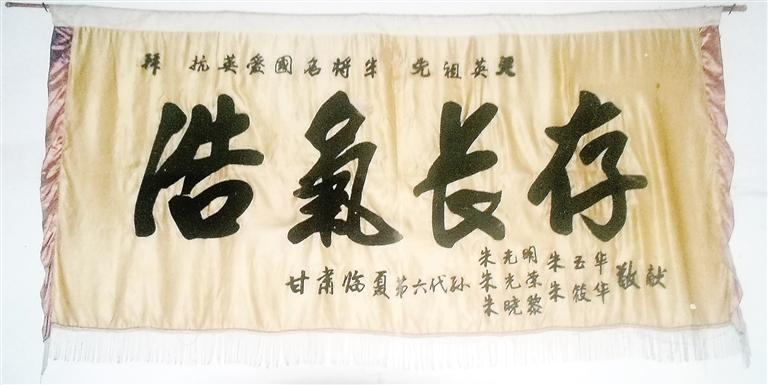 拜 抗英愛國名将朱 先祖英灵
浩氣长存
甘肃临夏第六代孙
朱光明 朱玉华
朱光荣 朱筱华
朱晓黎
敬献